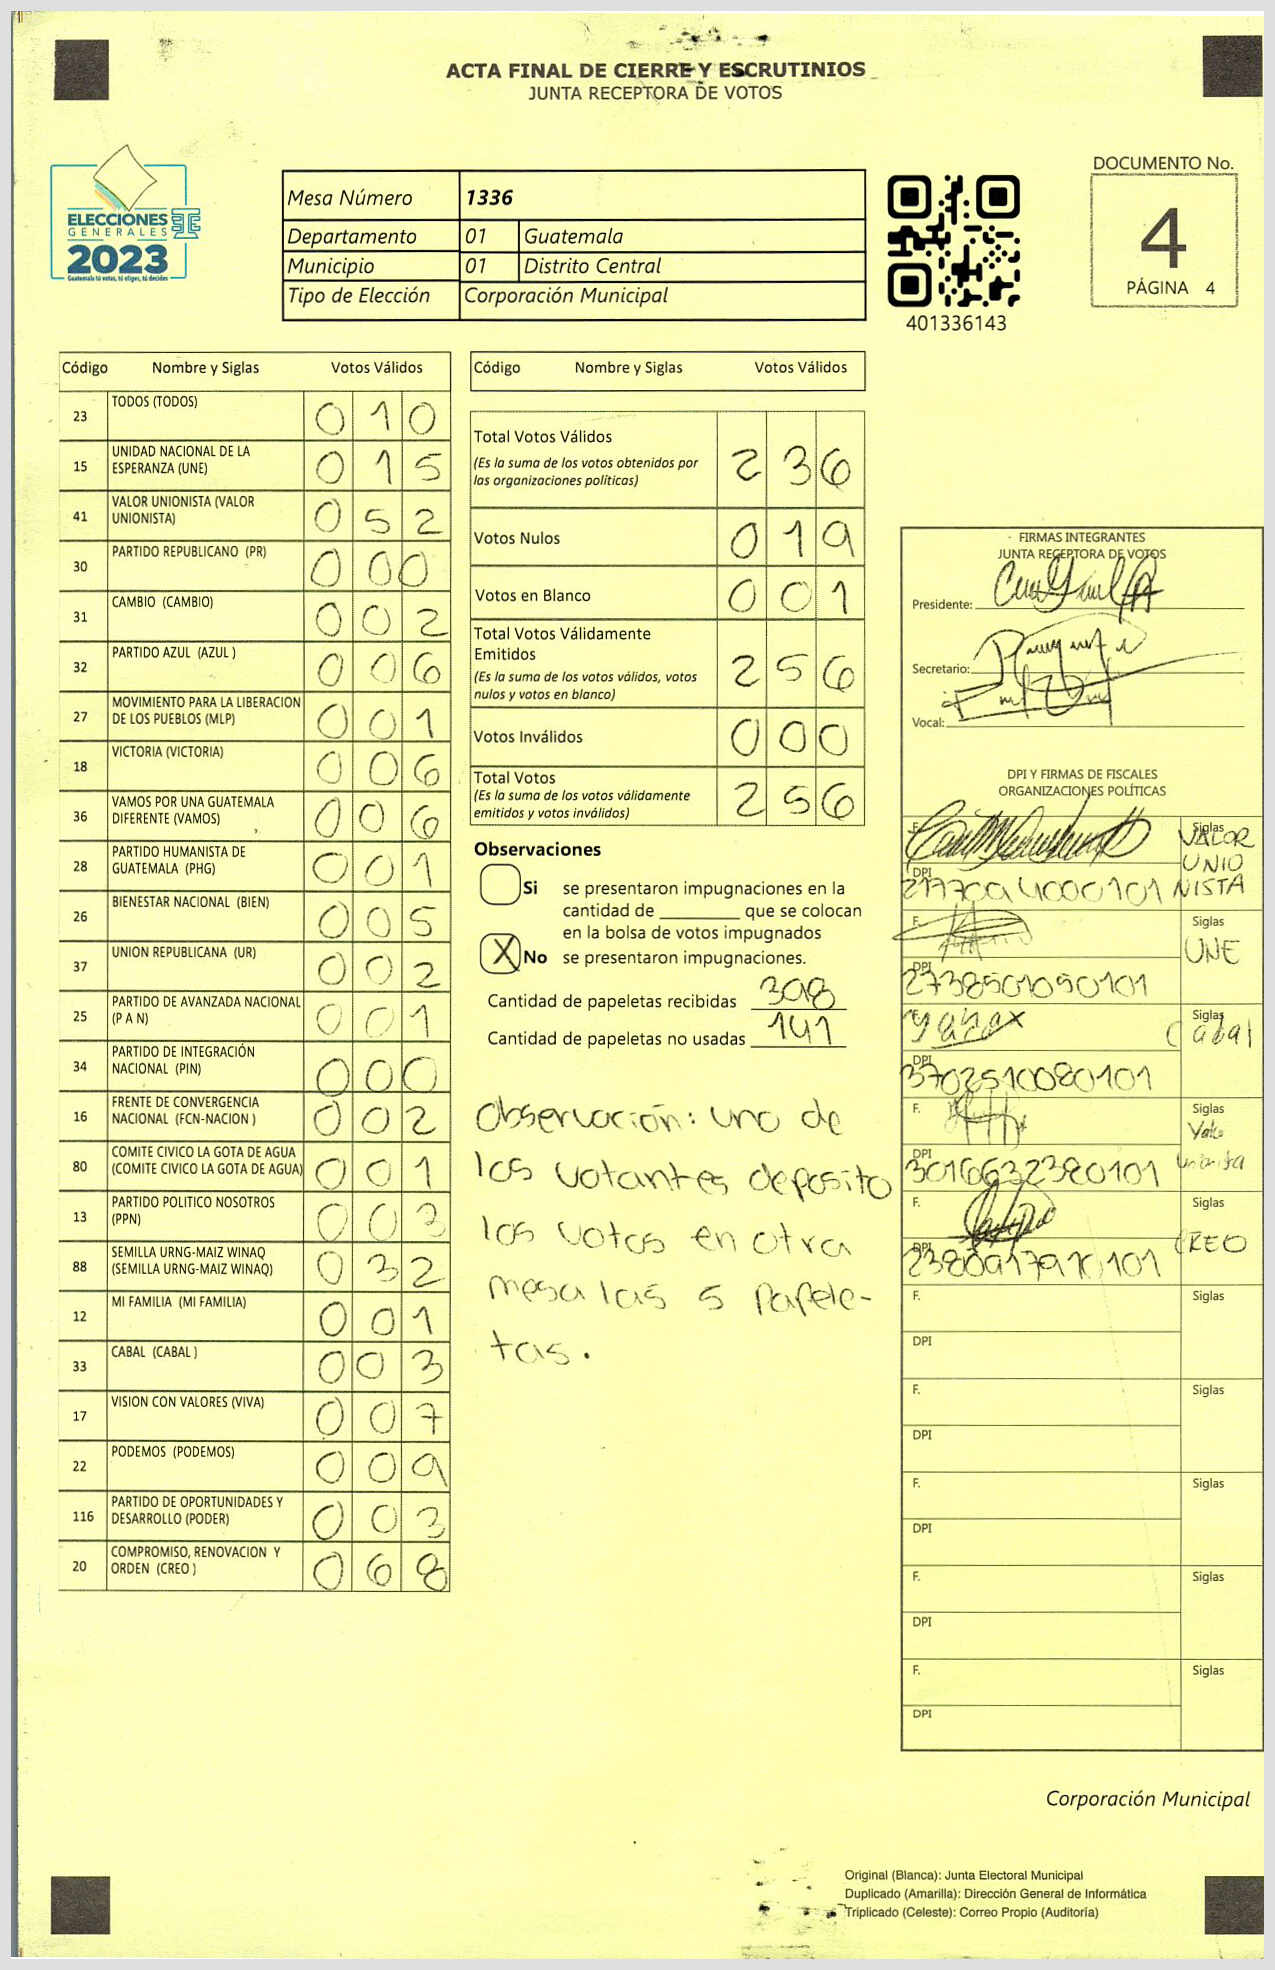 ACTA FINAL DE CIERRE Y ESCRUTINIOS
JUNTA RECEPTORA DE VOTOS
ELECCIONES
GENERALES
2023
Guatemala tú votas, tú eliges, tú decides
Mesa Número 1336
Departamento 01 Guatemala
Municipio 01 Distrito Central
Tipo de Elección Corporación Municipal
401336143
DOCUMENTO No.
4
PÁGINA 4
Código Nombre y Siglas Votos Válidos
23 TODOS (TODOS) 0 1 0
15 UNIDAD NACIONAL DE LA ESPERANZA (UNE) 0 1 5
41 VALOR UNIONISTA (VALOR UNIONISTA) 0 5 2
30 PARTIDO REPUBLICANO (PR) 0 0 0
31 CAMBIO (CAMBIO) 0 0 2
32 PARTIDO AZUL (AZUL ) 0 0 6
27 MOVIMIENTO PARA LA LIBERACION DE LOS PUEBLOS (MLP) 0 0 1
18 VICTORIA (VICTORIA) 0 0 6
36 VAMOS POR UNA GUATEMALA DIFERENTE (VAMOS) 0 0 6
28 PARTIDO HUMANISTA DE GUATEMALA (PHG) 0 0 1
26 BIENESTAR NACIONAL (BIEN) 0 0 5
37 UNION REPUBLICANA (UR) 0 0 2
25 PARTIDO DE AVANZADA NACIONAL (P A N) 0 0 1
34 PARTIDO DE INTEGRACIÓN NACIONAL (PIN) 0 0 0
16 FRENTE DE CONVERGENCIA NACIONAL (FCN-NACION ) 0 0 2
80 COMITE CIVICO LA GOTA DE AGUA (COMITE CIVICO LA GOTA DE AGUA) 0 0 1
13 PARTIDO POLITICO NOSOTROS (PPN) 0 0 3
88 SEMILLA URNG-MAIZ WINAQ (SEMILLA URNG-MAIZ WINAQ) 0 3 2
12 MI FAMILIA (MI FAMILIA) 0 0 1
33 CABAL (CABAL ) 0 0 3
17 VISION CON VALORES (VIVA) 0 0 7
22 PODEMOS (PODEMOS) 0 0 9
116 PARTIDO DE OPORTUNIDADES Y DESARROLLO (PODER) 0 0 3
20 COMPROMISO, RENOVACION Y ORDEN (CREO ) 0 6 8
Código Nombre y Siglas Votos Válidos
Total Votos Válidos 2 3 6
(Es la suma de los votos obtenidos por
las organizaciones políticas)
Votos Nulos 0 1 9
Votos en Blanco 0 0 1
Total Votos Válidamente
Emitidos 2 5 6
(Es la suma de los votos válidos, votos
nulos y votos en blanco)
Votos Inválidos 0 0 0
Total Votos 2 5 6
(Es la suma de los votos válidamente
emitidos y votos inválidos)
Observaciones
Si se presentaron impugnaciones en la
cantidad de ________ que se colocan
en la bolsa de votos impugnados
X No se presentaron impugnaciones.
Cantidad de papeletas recibidas 398
Cantidad de papeletas no usadas 141
Observación: uno de
los votantes deposito
los votos en otra
mesa las 5 papele-
tas.
FIRMAS INTEGRANTES
JUNTA RECEPTORA DE VOTOS
Presidente:
Secretario:
Vocal:
DPI Y FIRMAS DE FISCALES
ORGANIZACIONES POLÍTICAS
F. Siglas VALOR
UNIO
NISTA
DPI
F. Siglas UNE
DPI 2738501090101
F. Siglas Cabal
DPI 3702510080101
F. Siglas
DPI 3016632380101
F. Siglas CREO
DPI
F. Siglas
DPI
F. Siglas
DPI
F. Siglas
DPI
F. Siglas
DPI
F. Siglas
DPI
Corporación Municipal
Original (Blanca): Junta Electoral Municipal
Duplicado (Amarilla): Dirección General de Informática
Triplicado (Celeste): Correo Propio (Auditoría)